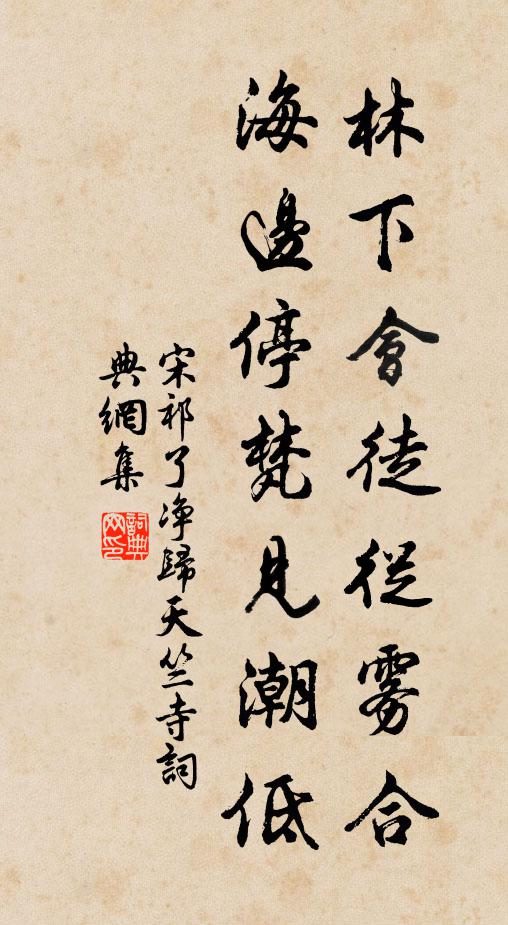 林下會徒從雾合
海邊停梵見潮低
宋祁了净歸天竺寺詞
典網集
詞典網印